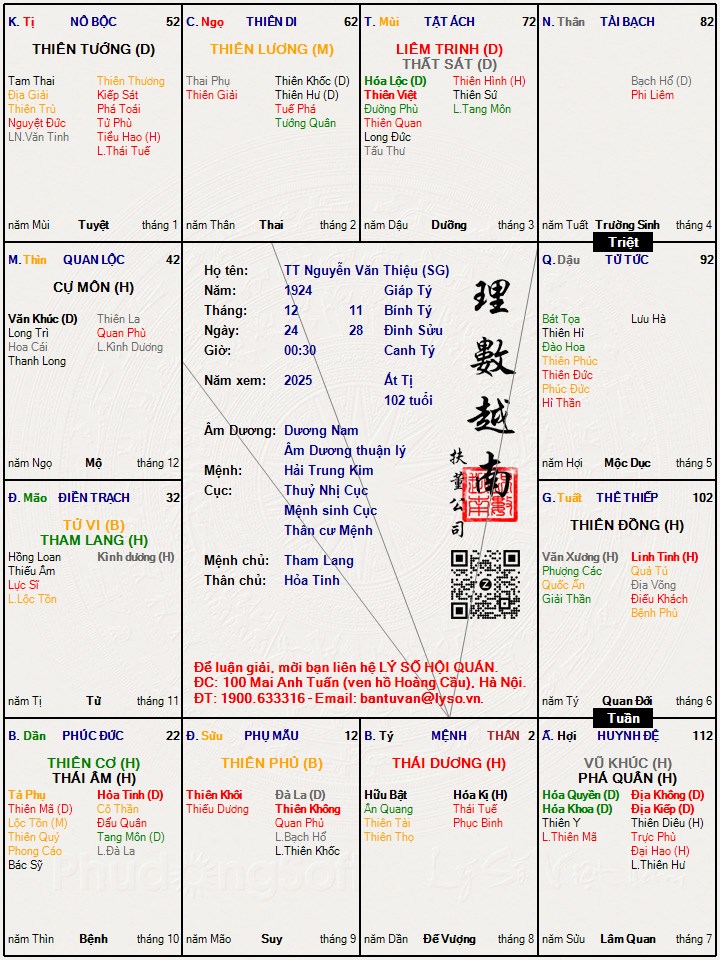 K. Tị NÔ BỘC 52
THIÊN TƯỚNG (D)
Tam Thai Thiên Thương
Địa Giải Kiếp Sát
Thiên Trù Phá Toái
Nguyệt Đức Tử Phù
LN.Văn Tinh Tiểu Hao (H)
L.Thái Tuế
năm Mùi Tuyệt tháng 1
C. Ngọ THIÊN DI 62
THIÊN LƯƠNG (M)
Thai Phụ Thiên Khốc (D)
Thiên Giải Thiên Hư (D)
Tuế Phá
Tướng Quân
năm Thân Thai tháng 2
T. Mùi TẬT ÁCH 72
LIÊM TRINH (D)
THẤT SÁT (D)
Hóa Lộc (D) Thiên Hình (H)
Thiên Việt Thiên Sứ
Đường Phù L.Tang Môn
Thiên Quan
Long Đức
Tấu Thư
năm Dậu Dưỡng tháng 3
N. Thân TÀI BẠCH 82
Bạch Hổ (D)
Phi Liêm
năm Tuất Trường Sinh tháng 4
Triệt
M. Thìn QUAN LỘC 42
CỰ MÔN (H)
Văn Khúc (D) Thiên La
Long Trì Quan Phù
Hoa Cái L.Kình Dương
Thanh Long
năm Ngọ Mộ tháng 12
Họ tên: TT Nguyễn Văn Thiệu (SG)
Năm: 1924 Giáp Tý
Tháng: 12 11 Bính Tý
Ngày: 24 28 Đinh Sửu
Giờ: 00:30 Canh Tý
Năm xem: 2025 Ất Tị
102 tuổi
Âm Dương: Dương Nam
Âm Dương thuận lý
Mệnh: Hải Trung Kim
Cục: Thuỷ Nhị Cục
Mệnh sinh Cục
Thân cư Mệnh
Mệnh chủ: Tham Lang
Thân chủ: Hỏa Tinh
理數越南
扶董公司
Để luận giải, mời bạn liên hệ LÝ SỐ HỘI QUÁN.
ĐC: 100 Mai Anh Tuấn (ven hồ Hoàng Cầu), Hà Nội.
ĐT: 1900.633316 - Email: bantuvan@lyso.vn.
Q. Dậu TỬ TỨC 92
Bát Tọa Lưu Hà
Thiên Hỉ
Đào Hoa
Thiên Phúc
Thiên Đức
Phúc Đức
Hỉ Thần
năm Hợi Mộc Dục tháng 5
Đ. Mão ĐIỀN TRẠCH 32
TỬ VI (B)
THAM LANG (H)
Hồng Loan Kình dương (H)
Thiếu Âm
Lực Sĩ
L.Lộc Tồn
năm Tị Tử tháng 11
G. Tuất THÊ THIẾP 102
THIÊN ĐỒNG (H)
Văn Xương (H) Linh Tinh (H)
Phượng Các Quả Tú
Quốc Ấn Địa Võng
Giải Thần Điếu Khách
Bệnh Phù
năm Tý Quan Đới tháng 6
Tuần
B. Dần PHÚC ĐỨC 22
THIÊN CƠ (H)
THÁI ÂM (H)
Tả Phụ Hỏa Tinh (D)
Thiên Mã (D) Cô Thần
Lộc Tồn (M) Đẩu Quân
Thiên Quý Tang Môn (D)
Phong Cáo L.Đà La
Bác Sỹ
năm Thìn Bệnh tháng 10
Đ. Sửu PHỤ MẪU 12
THIÊN PHỦ (B)
Thiên Khôi Đà La (D)
Thiếu Dương Thiên Không
Quan Phủ
L.Bạch Hổ
L.Thiên Khốc
năm Mão Suy tháng 9
B. Tý MỆNH THÂN 2
THÁI DƯƠNG (H)
Hữu Bật Hóa Kị (H)
Ân Quang Thái Tuế
Thiên Tài Phục Binh
Thiên Thọ
năm Dần Đế Vượng tháng 8
Ấ. Hợi HUYNH ĐỆ 112
VŨ KHÚC (H)
PHÁ QUÂN (H)
Hóa Quyền (D) Địa Không (D)
Hóa Khoa (D) Địa Kiếp (D)
Thiên Y Thiên Diêu (H)
L.Thiên Mã Trực Phù
Đại Hao (H)
L.Thiên Hư
năm Sửu Lâm Quan tháng 7